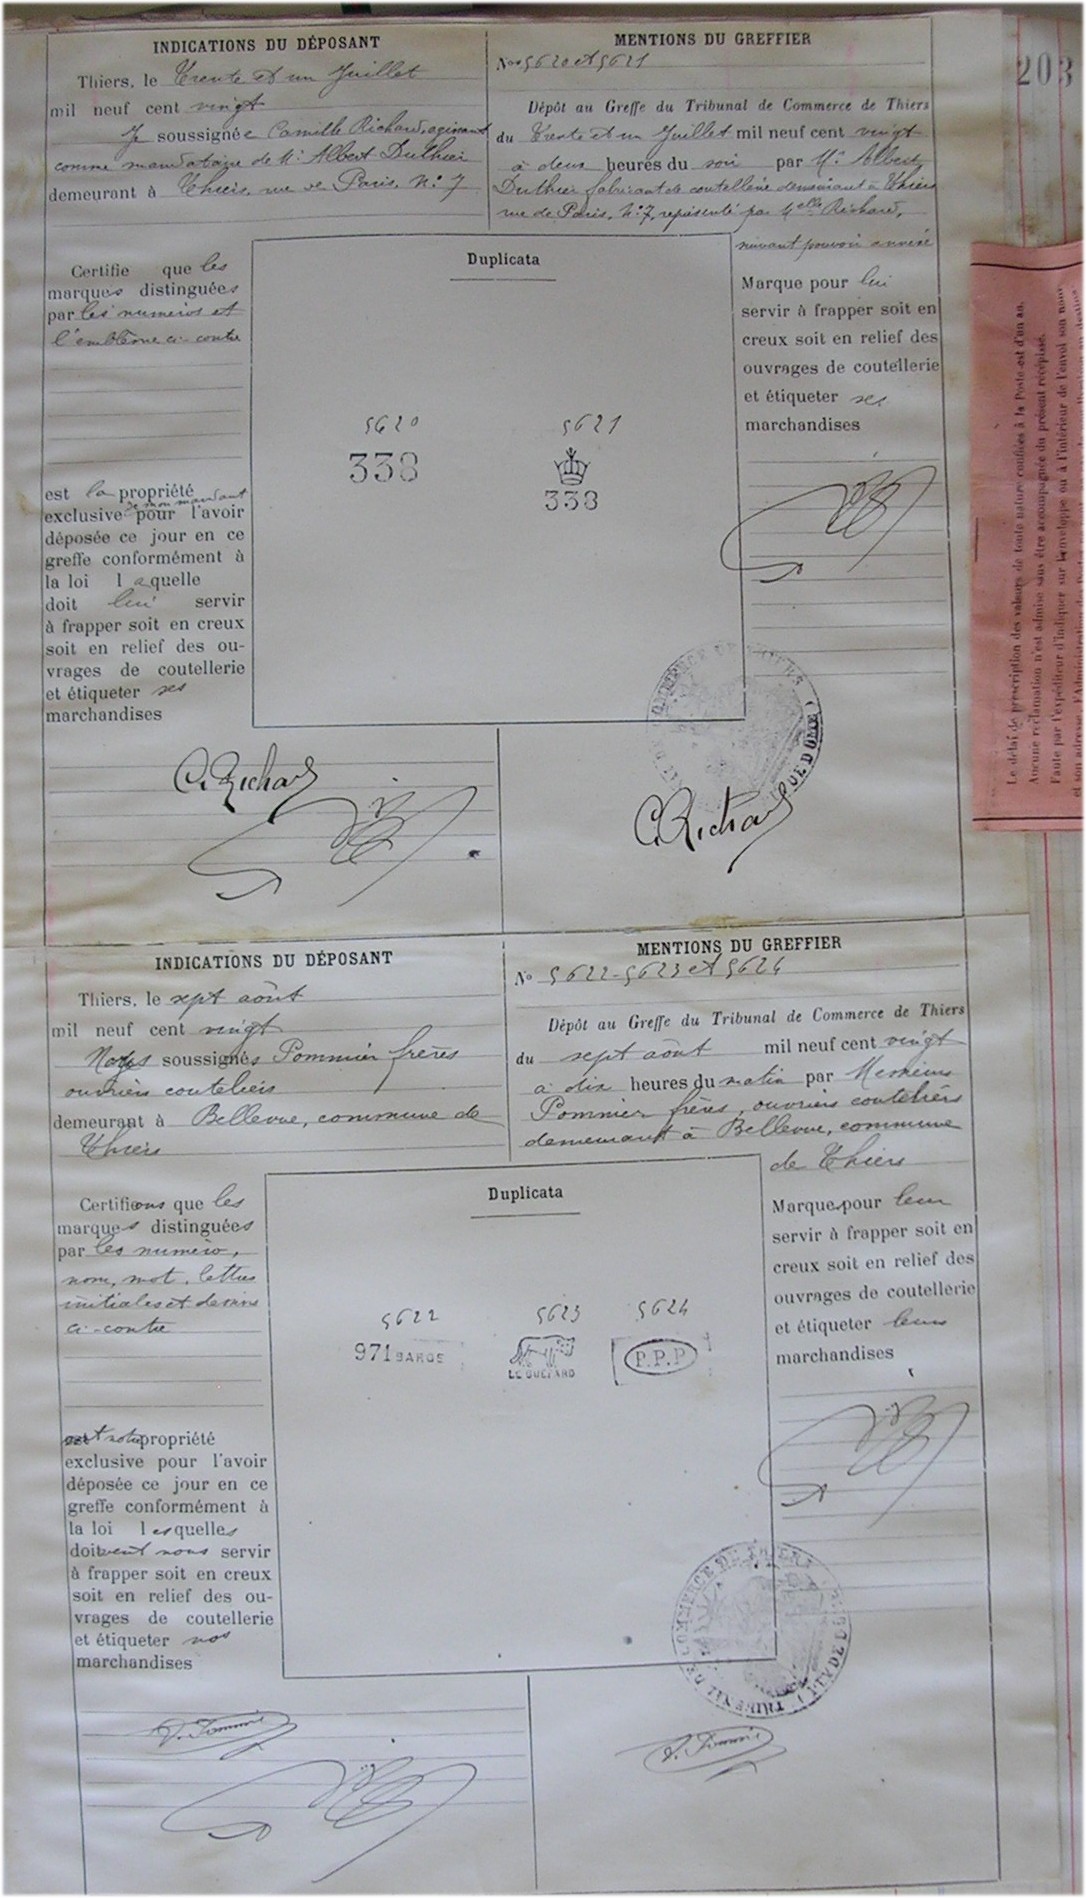 203
INDICATIONS DU DÉPOSANT
Thiers, le Trente et un Juillet
mil neuf cent vingt
Je soussignée Camille Richard, agissant
comme mandataire de Mr Albert Duthier
demeurant à Thiers, rue de Paris, No 7
MENTIONS DU GREFFIER
Nos 5620 et 5621
Dépôt au Greffe du Tribunal de Commerce de Thiers
du Trente et un Juillet mil neuf cent vingt
à deux heures du soir par Mr Albert
Duthier fabricant de coutellerie demeurant à Thiers
rue de Paris, No 7, représenté par Melle Richard,
suivant pouvoir annexé
Certifie que les
marques distinguées
par les numéros et
l'emblème ci-contre
est la propriété
de mon mandant
exclusive pour l'avoir
déposée ce jour en ce
greffe conformément à
la loi laquelle
doit lui servir
à frapper soit en creux
soit en relief des ou-
vrages de coutellerie
et étiqueter ses
marchandises
Duplicata
5620 5621
338
338
Marque pour lui
servir à frapper soit en
creux soit en relief des
ouvrages de coutellerie
et étiqueter ses
marchandises
C. Richard
C. Richard
Le délai de prescription des valeurs de toute nature confiées à la Poste est d'un an.
Aucune réclamation n'est admise sans être accompagnée du présent récépissé.
Faute par l'expéditeur d'indiquer sur l'enveloppe ou à l'intérieur de l'envoi son nom
INDICATIONS DU DÉPOSANT
Thiers, le sept août
mil neuf cent vingt
Nous soussignés Pommier frères
ouvriers couteliers
demeurant à Bellevue, commune de
Thiers
MENTIONS DU GREFFIER
No 5622-5623 et 5624
Dépôt au Greffe du Tribunal de Commerce de Thiers
du sept août mil neuf cent vingt
à dix heures du matin par Messieurs
Pommier frères, ouvriers couteliers
demeurant à Bellevue, commune
de Thiers
Certifions que les
marques distinguées
par les numéro,
nom, mot, lettres
initiales et dessins
ci-contre
est notre propriété
exclusive pour l'avoir
déposée ce jour en ce
greffe conformément à
la loi lesquelles
doivent nous servir
à frapper soit en creux
soit en relief des ou-
vrages de coutellerie
et étiqueter nos
marchandises
Duplicata
5622 5623 5624
971 BARGE
LE GUÉPARD
P.P.P
Marques pour leur
servir à frapper soit en
creux soit en relief des
ouvrages de coutellerie
et étiqueter leurs
marchandises
TRIBUNAL DE COMMERCE DE THIERS (PUY DE DÔME)